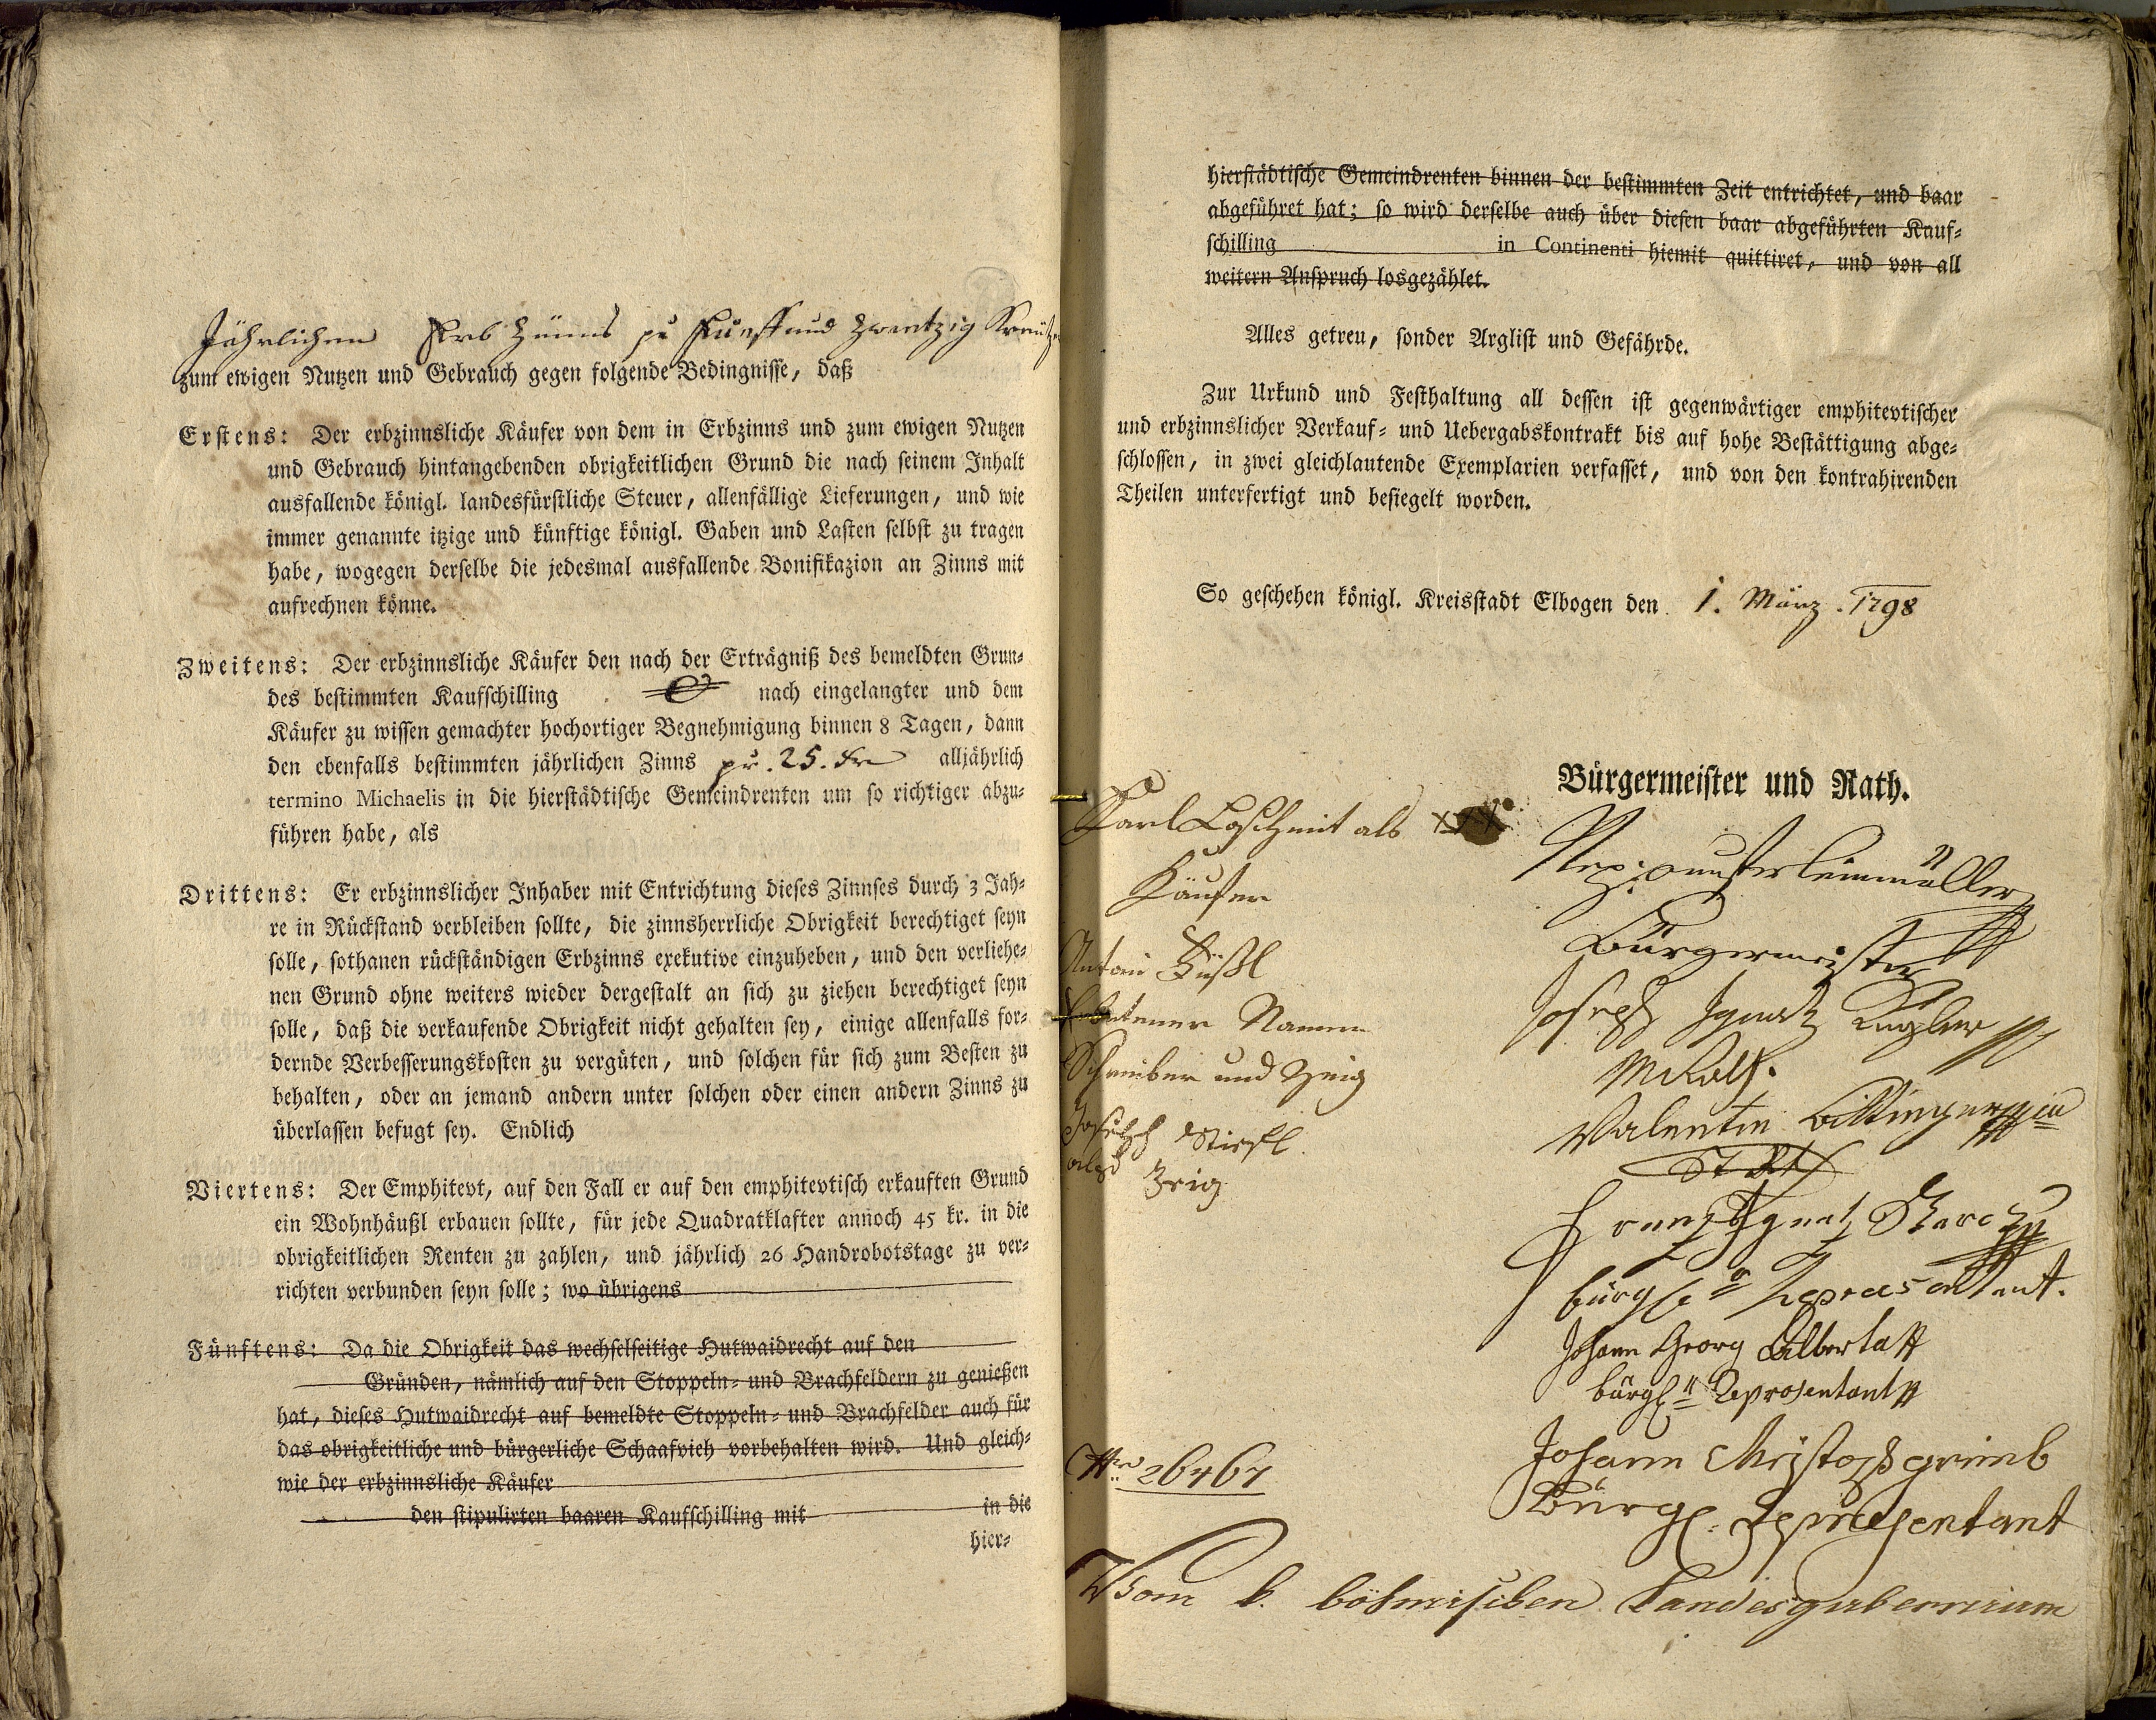 Jährlichen Erb Zünns pr Fuenff und Zwentzig Kreutzer
zum ewigen Nutzen und Gebrauch gegen folgende Bedingnisse, daß
Erstens: Der erbzinnsliche Käufer von dem in Erbzinns und zum ewigen Nutzen
und Gebrauch hintangebenden obrigkeitlichen Grund die nach seinem Inhalt
ausfallende königl. landesfürstliche Steuer, allenfällige Lieferungen, und wie
immer genannte itzige und künftige königl. Gaben und Lasten selbst zu tragen
habe, wogegen derselbe die jedesmal ausfallende Bonifikazion an Zinns mit
aufrechnen könne.
Zweitens: Der erbzinnsliche Käufer den nach der Erträgniß des bemeldten Grun-
des bestimmten Kaufschilling nach eingelangter und dem
Käufer zu wissen gemachter hochortiger Begnehmigung binnen 8 Tagen, dann
den ebenfalls bestimmten jährlichen Zinns pr. 25. kr alljährlich
termino Michaelis in die hierstädtische Gemeindrenten um so richtiger abzu-
führen habe, als
Drittens: Er erbzinnslicher Inhaber mit Entrichtung dieses Zinnses durch 3 Jah-
re in Rückstand verbleiben sollte, die zinnsherrliche Obrigkeit berechtiget seyn
solle, sothanen rückständigen Erbzinns exekutive einzuheben, und den verliehe-
nen Grund ohne weiters wieder dergestalt an sich zu ziehen berechtiget seyn
solle, daß die verkaufende Obrigkeit nicht gehalten sey, einige allenfalls for-
dernde Verbesserungskosten zu vergüten, und solchen für sich zum Besten zu
behalten, oder an jemand andern unter solchen oder einen andern Zinns zu
überlassen befugt sey. Endlich
Viertens: Der Emphitevt, auf den Fall er auf den emphitevtisch erkauften Grund
ein Wohnhäußl erbauen sollte, für jede Quadratklafter annoch 45 kr. in die
obrigkeitlichen Renten zu zahlen, und jährlich 26 Handrobotstage zu ver-
richten verbunden seyn solle; wo übrigens
Fünftens: Da die Obrigkeit das wechselseitige Hutwaidrecht auf den
Gründen, nämlich auf den Stoppeln- und Brachfeldern zu genießen
hat, dieses Hutwaidrecht auf bemeldte Stoppeln- und Brachfelder auch für
das obrigkeitliche und bürgerliche Schaafvieh vorbehalten wird. Und gleich-
wie der erbzinnsliche Käufer
den stipulirten baaren Kaufschilling mit in die
hier-
hierstädtische Gemeindrenten binnen der bestimmten Zeit entrichtet, und baar
abgeführet hat; so wird derselbe auch über diesen baar abgeführten Kauf-
schilling in Continenti hiemit quittiret, und von all
weitern Anspruch losgezählet.
Alles getreu, sonder Arglist und Gefährde.
Zur Urkund und Festhaltung all dessen ist gegenwärtiger emphitevtischer
und erbzinnslicher Verkauf- und Uebergabskontrakt bis auf hohe Bestättigung abge-
schlossen, in zwei gleichlautende Exemplarien verfasset, und von den kontrahirenden
Theilen unterfertigt und besiegelt worden.
So geschehen königl. Kreisstadt Elbogen den 1. März. 1798
Bürgermeister und Rath.
Karl Loschmit als xxx
Käufer
Antoni
Namen
Schreiber und Zeig
Joseph
als Zeig
Bürgermeister
Joseph Ignatz
Valentin
Franz Ignatz
bürgl. Repraesentant.
Johann Georg Alberta
bürgl. Representant
Johann Christoph
Bürgl. Representant
Nro 26467
Vom k. böhmischen Landesgubernium